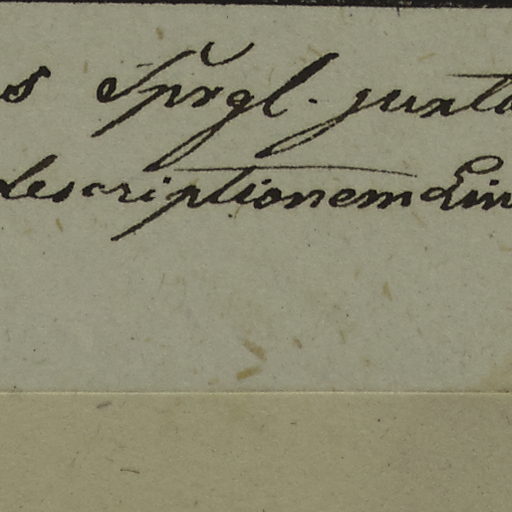 s Sprgl. juxta
descriptionem Lin